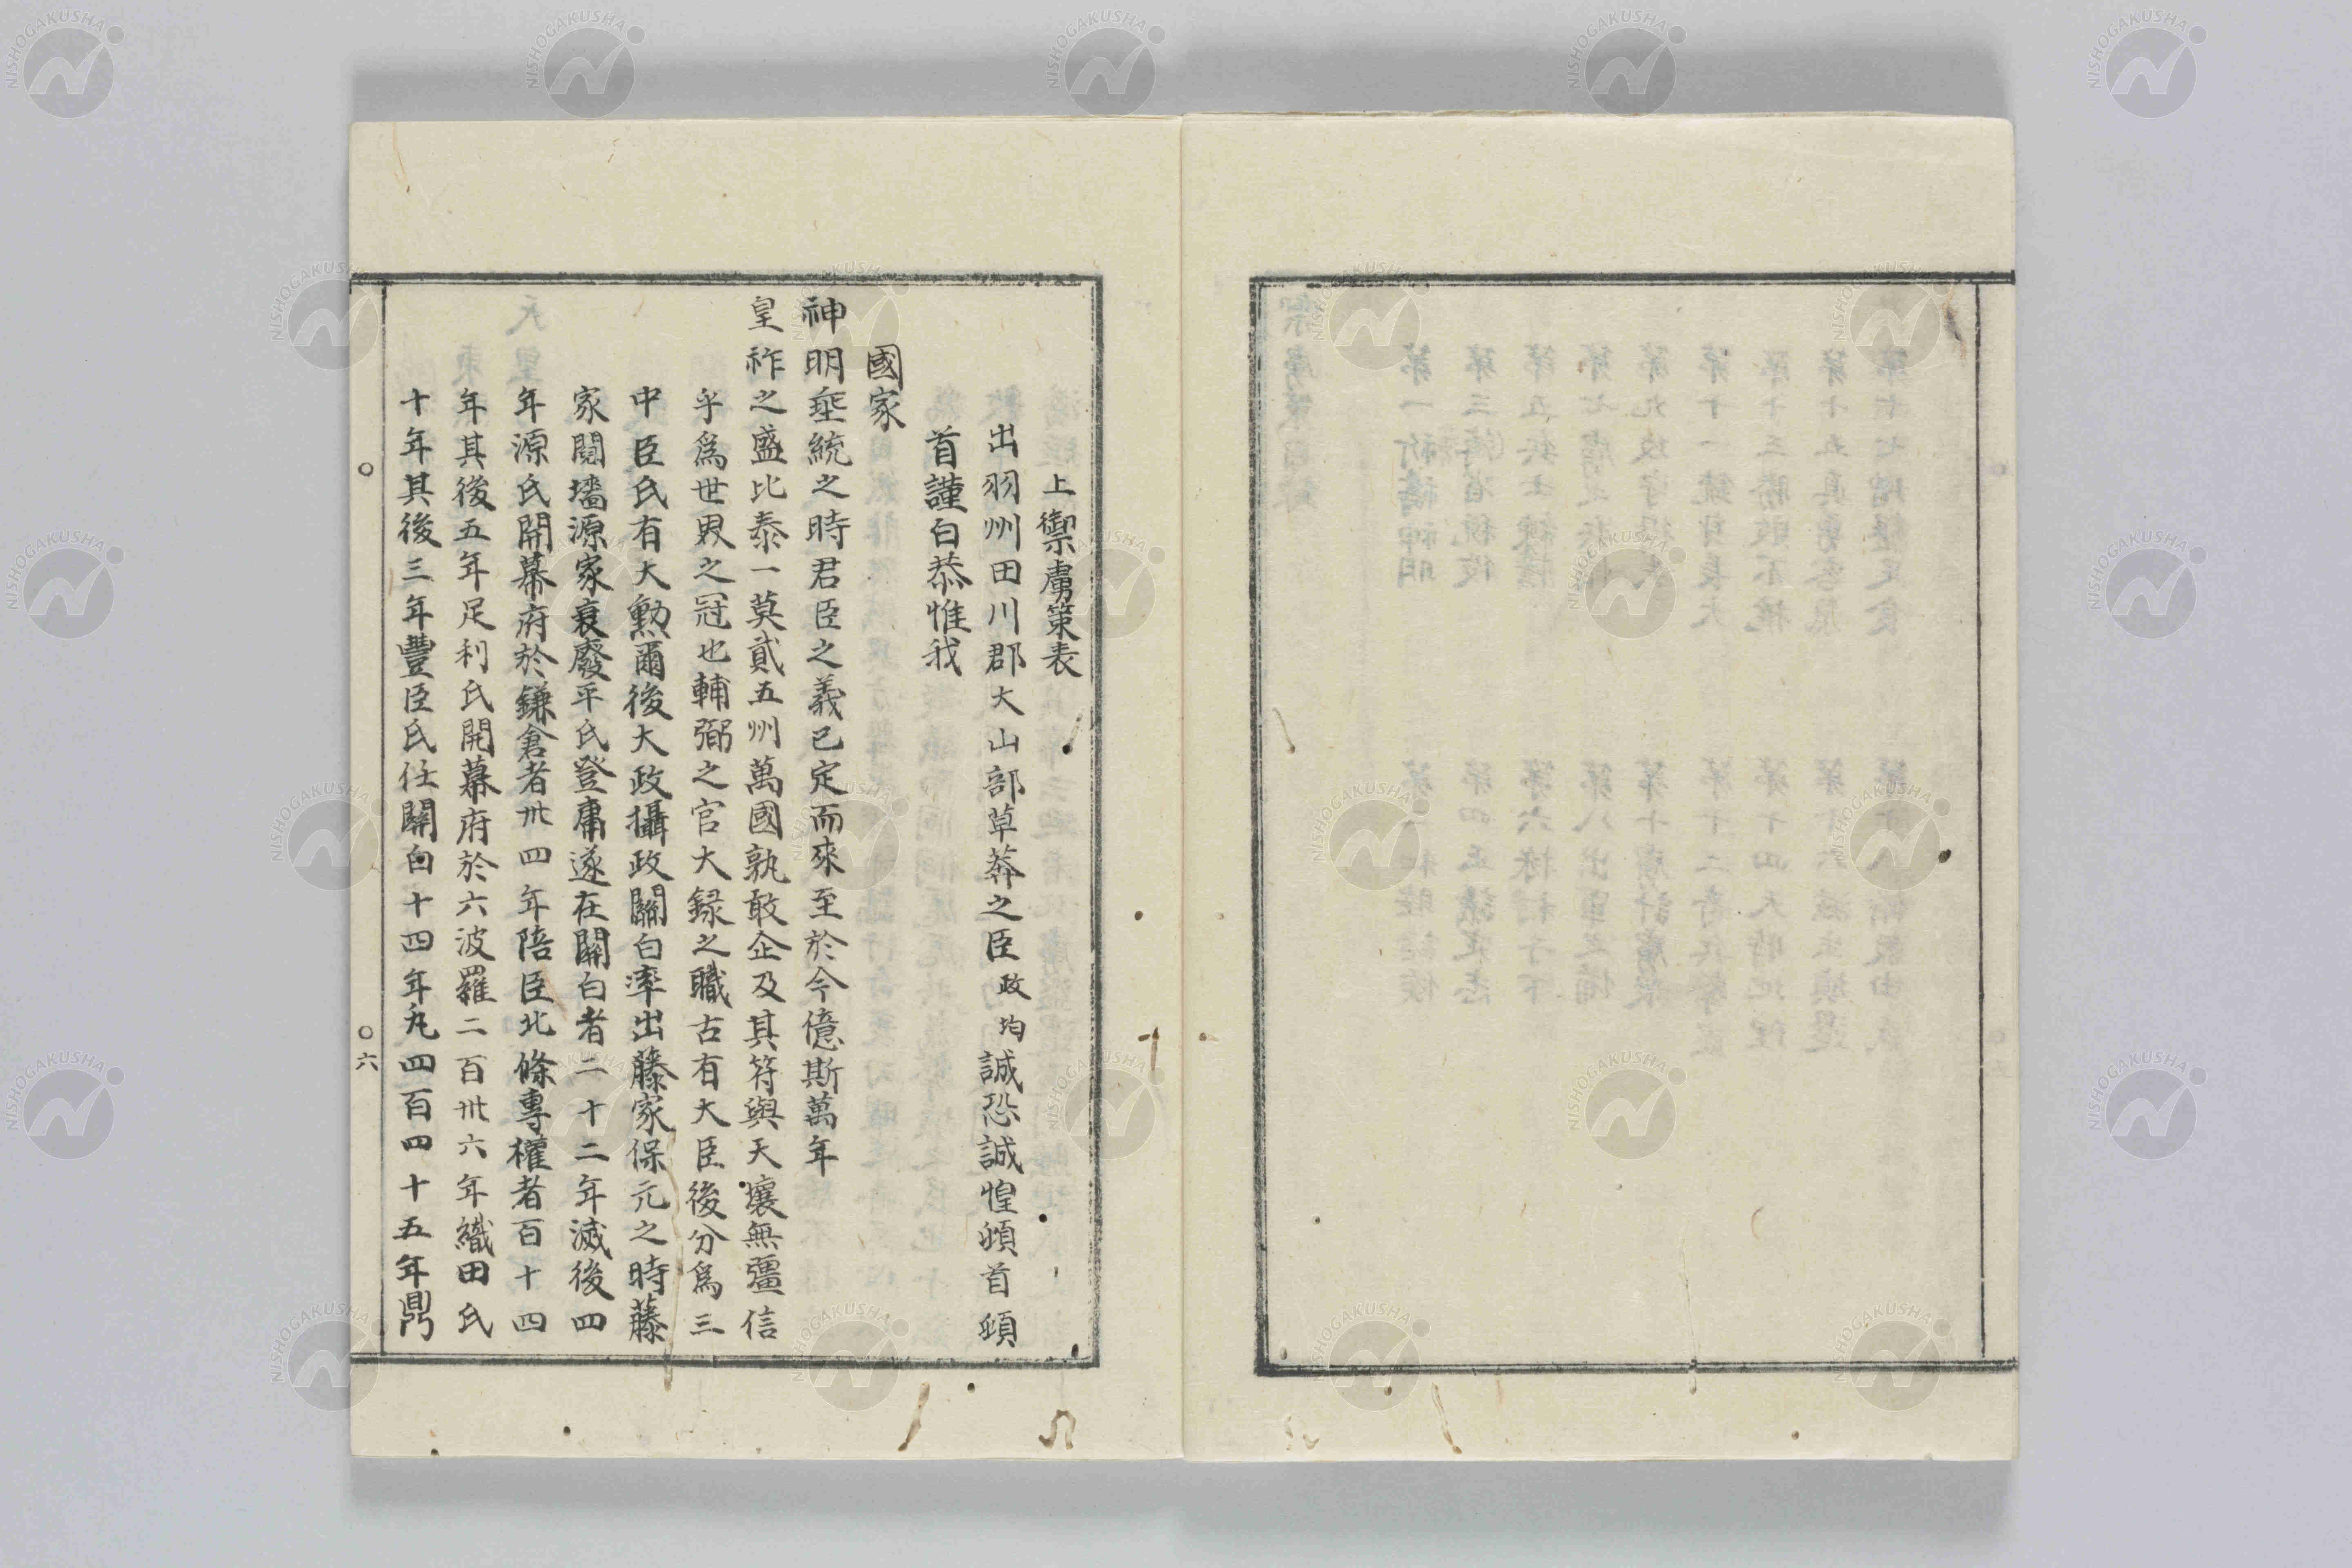 上禦虜策表
出羽州田川郡大山部草莽之臣政均誠恐誠惶頓首頓
首謹白恭惟我
國家
神明垂統之時君臣之義已定而來至於今億斯萬年
皇祚之盛比泰一莫貳五州萬國孰敢企及其符與天壤無彊信
乎爲世界之冠也輔弼之官大録之職古有大臣後分爲三
中臣氏有大勲爾後大政攝政關白率出藤家保元之時藤
家鬩墻源家衰廢平氏登庸遂在關白者二十二年滅後四
年源氏開幕府於鎌倉者卅四年陪臣北條專權者百十四
年其後五年足利氏開幕府於六波羅二百卅六年織田氏
十年其後三年豐臣氏任關白十四年凢四百四十五年鼎
六
NISHOGAKUSHA